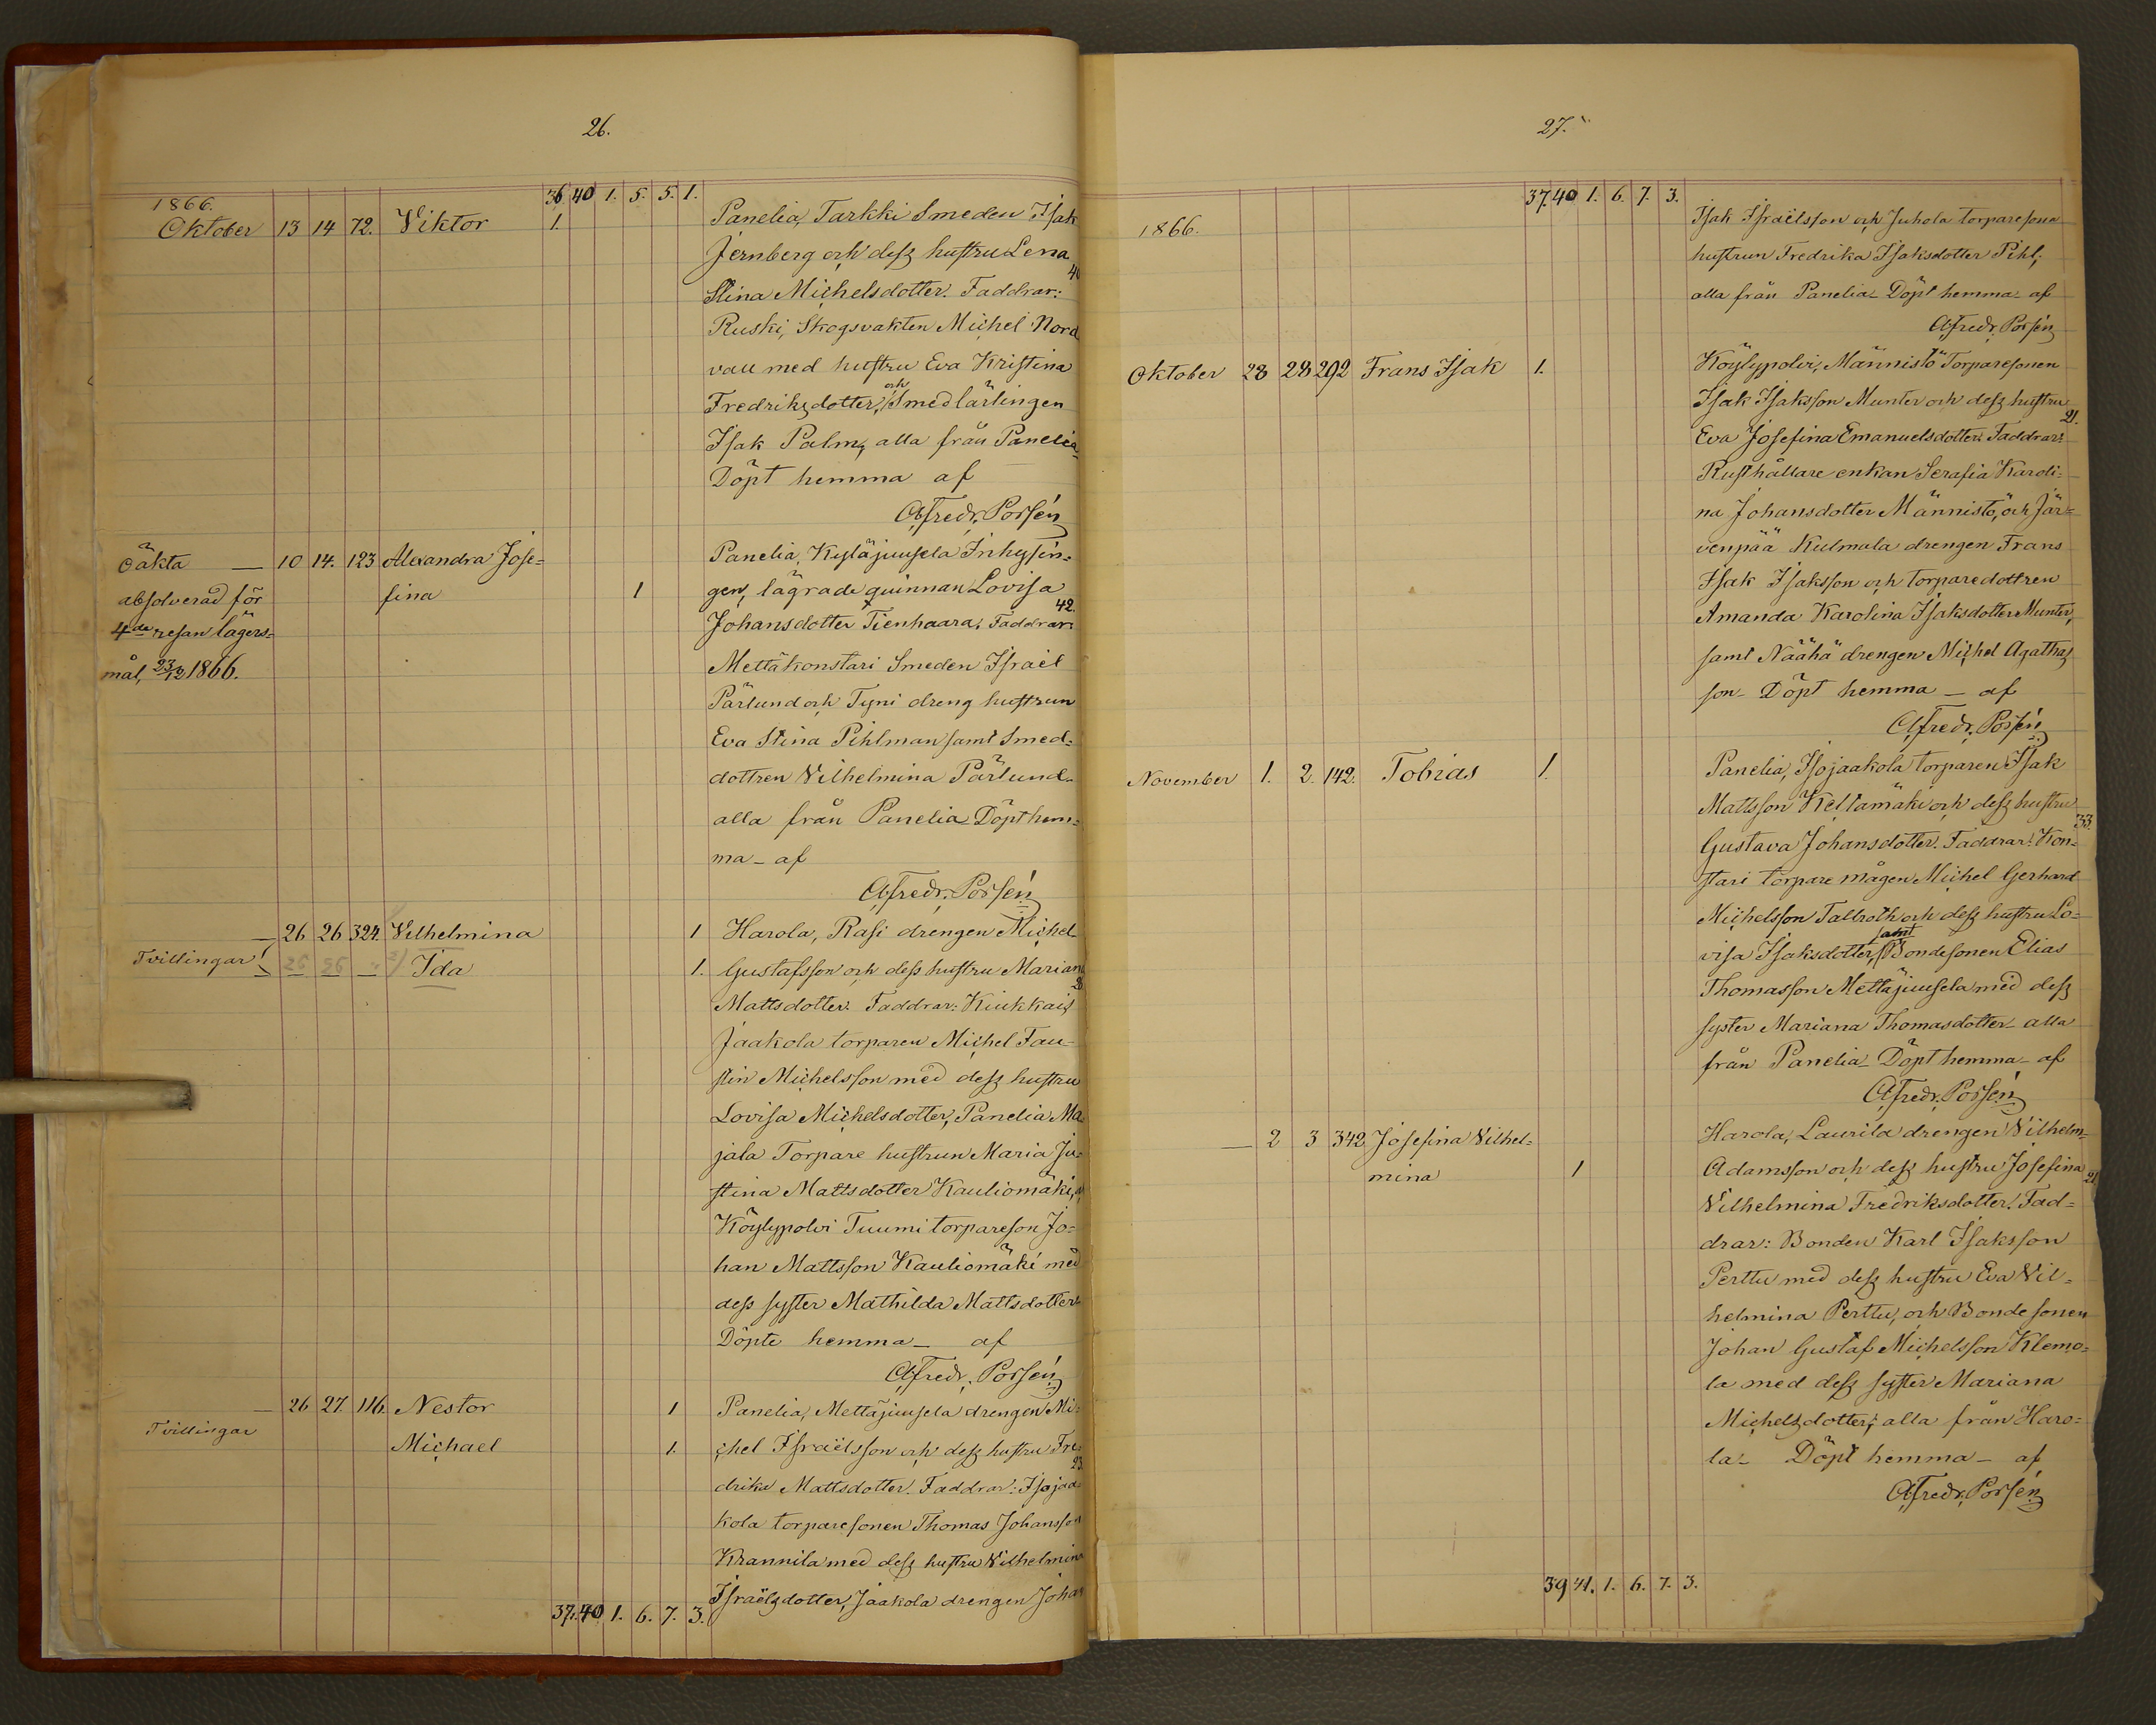 26.
36 40 1. 5. 5. 1.
1866.
Oktober 13 14 72. Viktor 1. Panelia, Tarkki Smeden Isak
Jernberg och dess hustru Lena
40
Stina Michelsdotter. Faddrar:
Ruski, Skogsvakten Michel Nord
vall med hustru Eva Kristina
och
Fredriksdotter, Smedlärlingen
Isak Palm, alla från Panelia_
Döpt hemma af
Afredr. Porsén
Oäkta — 10 14. 123 Alexandra Jose= Panelia, Kyläjuusela Inhysin=
absolverad för fina 1 gen, lägrade quinnan Lovisa
42.
4de resan lägers= Johansdotter Tienhaara. Faddrar:
mål, 23/12 1866. Mettäkonstari Smeden Israel
Pärlund och Tyni dreng hustrun
Eva Stina Pihlman samt Smed=
dottren Vilhelmina Pärlund_
alla från Panelia_ Döpt hem=
ma_ af
Afredr. Porsén
— 26 26 324. Vilhelmina 1 Harola, Rasi drengen Michel
Tvillingar 26 26 — 2) Ida 1. Gustafsson och dess hustru Mariana
26
Mattsdotter. Faddrar: Kiukkais
Jaakola torparen Michel Fau=
stin Michelsson med dess hustru
Lovisa Michelsdotter, Panelia Ma
jala Torpare hustrun Maria Ju=
stina Mattsdotter Kauliomäki,
Köylypolvi Tuumi torpareson Jo=
han Mattsson Kauliomäki med
dess syster Mathilda Mattsdotter_
Döpte hemma_ af
Afredr. Porsén
— 26 27. 116. Nestor 1 Panelia, Mettäjuusela drengen Mi=
Tvillingar
Michael 1. chel Israëlsson och dess hustru Fre
23.
drika Mattsdotter. Faddrar: Isojaa
kola torparesonen Thomas Johansson
Krannila med dess hustru Vilhelmina
Israëlsdotter, Jaakola drengen Johan
37. 40 1. 6. 7. 3.
27.
37. 40 1. 6. 7. 3.
1866. Isak Israëlsson och Juhola torparesona
hustrun Fredrika Isaksdotter Pihl,
alla från Panelia_ Döpt hemma af
Afredr. Porsén
Oktober 28 28 292 Frans Isak 1. Köylypolvi, Männistö Torparesonen
Isak Isaksson Munter och dess hustru
21.
Eva Josefina Emanuelsdotter. Faddrar:
Rusthållare enkan Serafia Karoli=
na Johansdotter Männistö, och Jär=
venpää Kulmala drengen Frans
Isak Isaksson och torparedottren
Amanda Karolina Isaksdotter Munter,
samt Näähä drengen Michel Agathas
son_ Döpt hemma_ af
Afredr. Porsén
November 1. 2. 142. Tobias 1. Panelia, Isojaakola torparen Isak
Mattsson Keltamäki och dess hustru
33.
Gustava Johansdotter. Faddrar: Kon=
stari torpare mågen Michel Gerhard
Michelsson Tallroth och dess hustru Lo=
samt
visa Isaksdotter, Bondesonen Elias
Thomasson Mettäjuusela med dess
syster Mariana Thomasdotter_ alla
från Panelia_ Döpt hemma_ af
Afredr. Porsén
— 2 3 342 Josefina Vilhel= Harola, Laurila drengen Vilhelm
mina 1 Adamsson och dess hustru Josefina
21
Vilhelmina Fredriksdotter. Fad=
drar: Bonden Karl Isaksson
Perttu med dess hustru Eva Vil=
helmina Perttu, och Bondesonen
Johan Gustaf Michelsson Klemo=
la med dess syster Mariana
Michelsdotter, alla från Haro=
la_ Döpt hemma_ af
Afredr. Porsén
39 41. 1. 6. 7. 3.